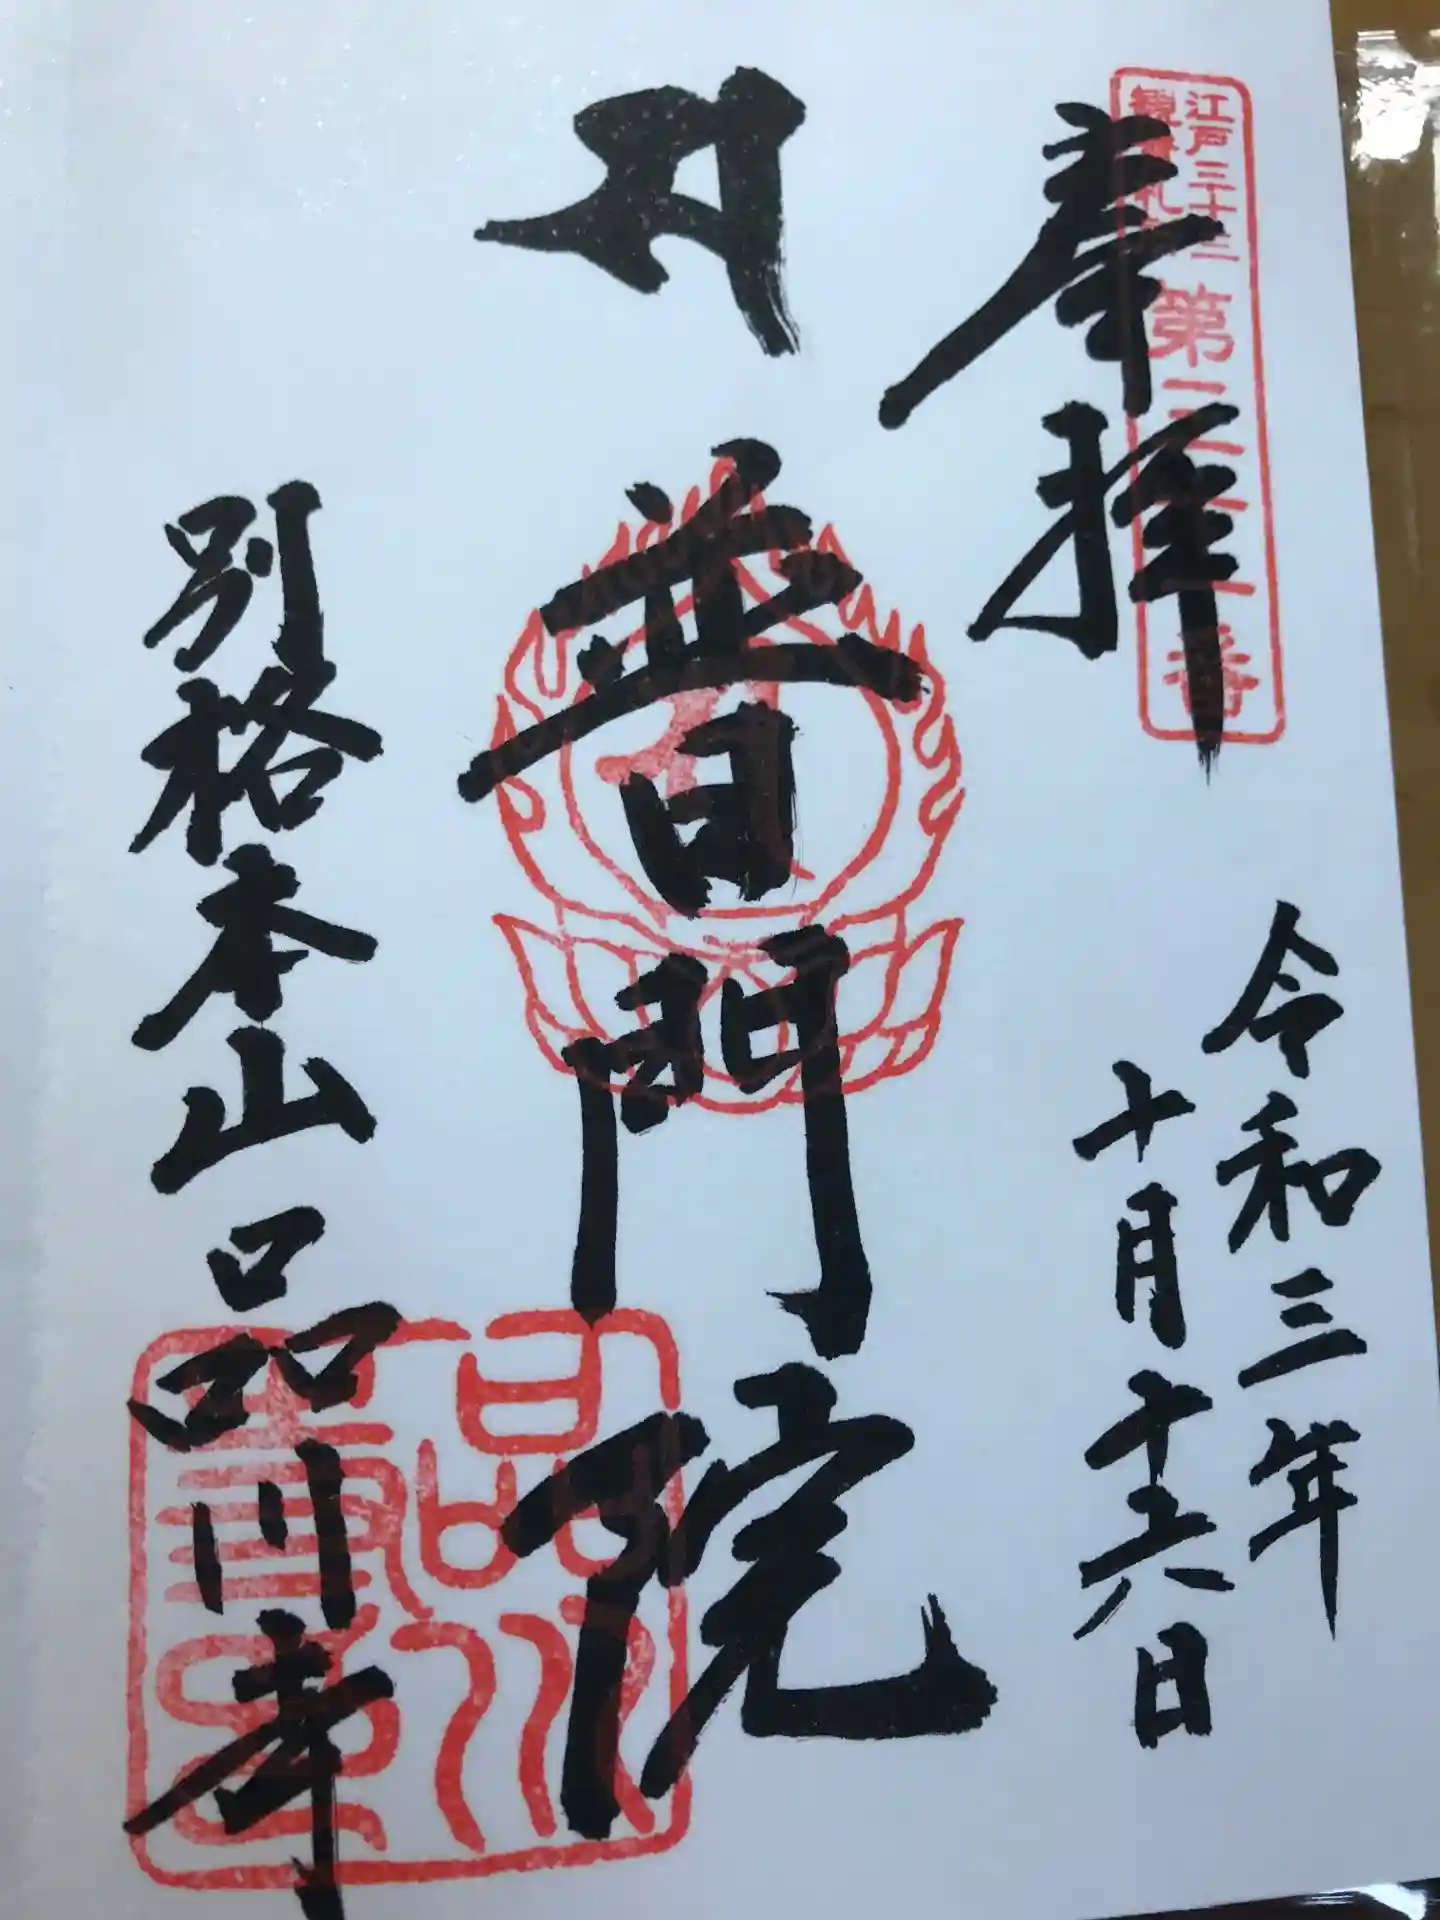 江戸三十三
観音札所
第三十一番
奉拝
令和三年
十月十六日
普門院
別格本山品川寺